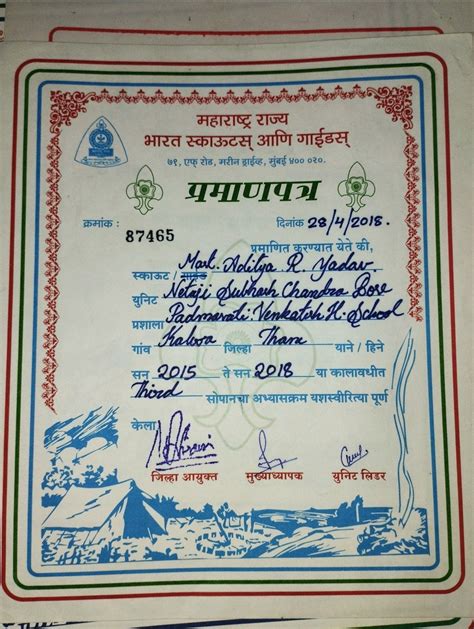 महाराष्ट्र राज्य
भारत स्काऊटस् आणि गाईडस्
७१, एफ् रोड, मरीन ड्राईव्ह, मुंबई ४०० ०२०.
प्रमाणपत्र
क्रमांक : 87465 दिनांक 28/4/2018.
प्रमाणित करण्यात येते की,
स्काऊट / गाईड Mast. Aditya R. Yadav
युनिट Netaji Subhash Chandra Bose
प्रशाला Padmavati Venkatesh H. School
गांव Kalwa जिल्हा Thane याने / हिने
सन 2015 ते सन 2018 या कालावधीत
Third सोपानचा अभ्यासक्रम यशस्वीरित्या पूर्ण
केला
जिल्हा आयुक्त मुख्याध्यापक युनिट लिडर